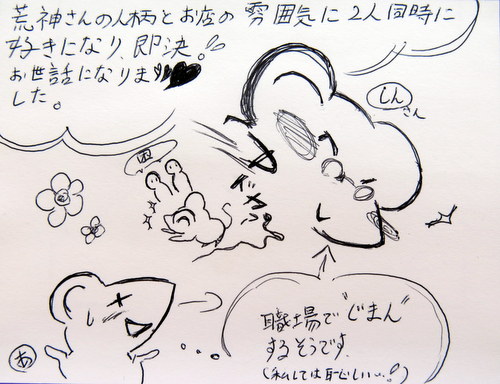 荒神さんの人柄とお店の雰囲気に2人同時に
好きになり、即決。!!
お世話になりま
した。
しん
さん
ドキッ
職場で"じまん"
するそうです.
(私しては恥しい…!)
あ